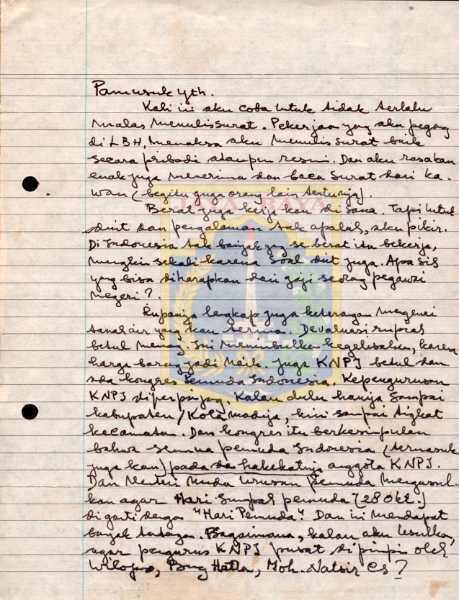 Pamusuk yth.
Kali ini aku coba untuk tidak terlalu
malas menulis surat. Pekerjaan yang aku pegang
di LBH, memaksa aku menulis surat baik
secara pribadi ataupun resmi. Dan aku rasakan
enak juga menerima dan baca surat dari ka-
wan (begitu juga orang lain tentunja).
Berat juga kerja kau di sana. Tapi untuk
duit dan pengalaman tak apalah, aku pikir.
Di Indonesia tak banjak yg se berat itu bekerja,
mungkin sekali karena soal duit juga. Apa sih
yang bisa diharapkan dari gaji seorang pegawai
negeri?
Rupanja lengkap juga keterangan mengenai
tanah air yang kau terima. Devaluasi rupiah
betul menimbulkan kegelisahan, karena
harga barang jadi naik. Juga KNPI betul dan
ada kongres Pemuda Indonesia. Kepengurusan
KNPI diperpanjang. Kalau dulu hanja sampai
kabupaten/Kota madija, kini sampai tingkat
kecamatan. Dan kongres itu berkesimpulan
bahwa semua pemuda Indonesia (termasuk
juga kau) pada hakekatnja anggota KNPI.
Dan Menteri Muda Urusan Pemuda mengusul-
kan agar Hari Sumpah pemuda (28 Okt.)
diganti dengan "Hari Pemuda". Dan ini mendapat
banjak tantangan. Bagaimana, kalau aku usulkan,
agar pengurus KNPI pusat dipimpin oleh
Wilopo, Bung Hatta, Moh. Natsir cs?
JAYA RAYA